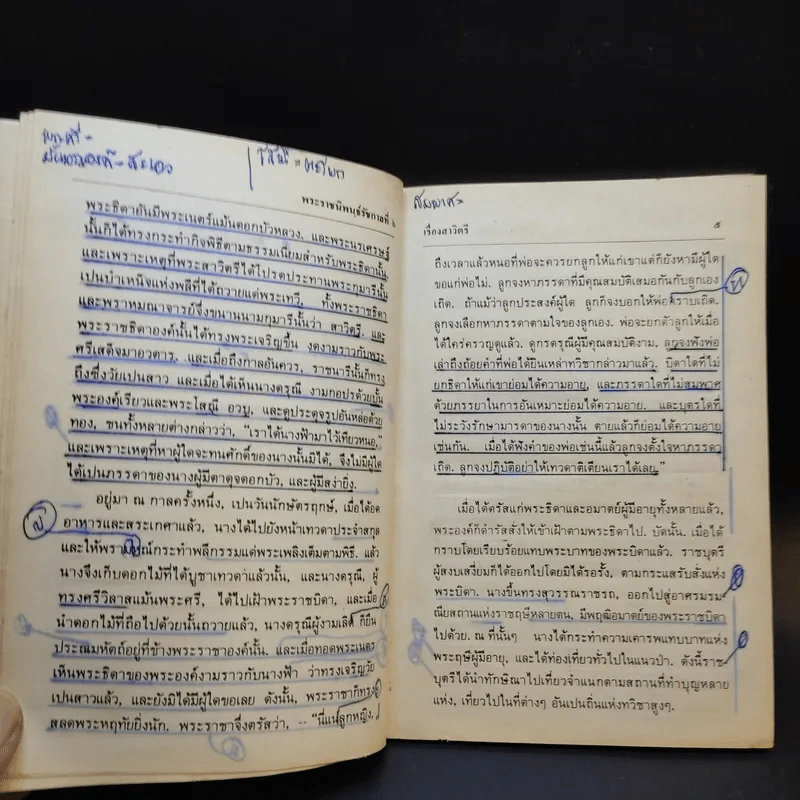 พระราชนิพนธ์รัชกาลที่ ๖
พระธิดาอันมีพระเนตร์แม้นดอกบัวหลวง, และพระนรเศรษฐ์
นั้นก็ได้ทรงกระทำกิจพิธีตามธรรมเนียมสำหรับพระธิดานั้น,
และเพราะเหตุที่พระสาวิตรีได้โปรดประทานพระกุมารีนั้น
เปนบำเหน็จแห่งพลีที่ได้ถวายแด่พระเทวี, ทั้งพระราชธิดา
และพราหมณาจารย์จึ่งขนานนามกุมารีนั้นว่า สาวิตรี. และ
พระราชธิดาองค์นั้นได้ทรงพระเจริญขึ้น งดงามราวกับพระ
ศรีเสด็จมาอวตาร, และเมื่อถึงกาลอันควร, ราชนารีนั้นก็ทรง
ถึงซึ่งวัยเปนสาว และเมื่อได้เห็นนางดรุณี งามกอปรด้วยบั้น
พระองค์เรียวและพระโสณี อวบ, และดูประดุจรูปอันหล่อด้วย
ทอง, ชนทั้งหลายต่างกล่าวว่า, “เราได้นางฟ้ามาไว้เทียวหนอ,”
และเพราะเหตุที่หาผู้ใดจะทนศักดิ์ของนางนั้นมิได้, จึงไม่มีผู้ใด
ได้เปนภรรดาของนางผู้มีตาดุจดอกบัว, และผู้มีสง่ายิ่ง.
อยู่มา ณ กาลครั้งหนึ่ง, เปนวันนักษัตรฤกษ์, เมื่อได้อด
อาหารและสระเกศาแล้ว, นางได้ไปยังหน้าเทวดาประจำสกุล
และให้พราหมณ์กระทำพลีกรรมแด่พระเพลิงเติมตามพิธี. แล้ว
นางจึงเก็บดอกไม้ที่ได้บูชาเทวดาแล้วนั้น, และนางดรุณี, ผู้
ทรงศรีวิลาสแม้นพระศรี, ได้ไปเฝ้าพระราชบิดา, และเมื่อ
นำดอกไม้ที่ถือไปด้วยนั้นถวายแล้ว, นางดรุณีผู้งามเลิศ ก็ยืน
ประณมหัตถ์อยู่ที่ข้างพระราชาองค์นั้น. และเมื่อทอดพระเนตร
เห็นพระธิดาของพระองค์งามราวกับนางฟ้า ว่าทรงเจริญวัย
เปนสาวแล้ว, และยังมิได้มีผู้ใดขอเลย ดังนั้น, พระราชาก็ทรง
สลดพระหฤทัยยิ่งนัก. พระราชาจึ่งตรัสว่า, “นี่แน่ลูกหญิง,
เรื่องสาวิตรี ๕
ถึงเวลาแล้วหนอที่พ่อจะควรยกลูกให้แก่เขาแต่ก็ยังหามีผู้ใด
ขอแก่พ่อไม่. ลูกจงหาภรรดาที่มีคุณสมบัติเสมอกันกับลูกเอง
เถิด. ถ้าแม้ว่าลูกประสงค์ผู้ใด ลูกก็จงบอกให้พ่อทราบเถิด.
ลูกจงเลือกหาภรรดาตามใจของลูกเอง. พ่อจะยกตัวลูกให้เมื่อ
ได้ใคร่ครวญดูแล้ว. ดูกรดรุณีผู้มีคุณสมบัติงาม, ลูกจงฟังพ่อ
เล่าถึงถ้อยคำที่พ่อได้ยินเหล่าทวิชากล่าวมาแล้ว. บิดาใดที่ไม่
ยกธิดาให้แก่เขาย่อมได้ความอายุ, และภรรดาใดที่ไม่สมพาศ
ด้วยภรรยาในการอันเหมาะย่อมได้ความอายุ. และบุตรใดที่
ไม่ระวังรักษามารดาของนางนั้น ตายแล้วก็ย่อมได้ความอาย
เช่นกัน. เมื่อได้ฟังคำของพ่อเช่นนี้แล้วลูกจงตั้งใจหาภรรดา
เถิด. ลูกจงปฏิบัติอย่าให้เทวดาติเตียนเราได้เลย.”
เมื่อได้ตรัสแก่พระธิดาและอมาตย์ผู้มีอายุทั้งหลายแล้ว,
พระองค์ก็ดำรัสสั่งให้เข้าเฝ้าตามพระธิดาไป. บัดนั้น. เมื่อได้
กราบโดยเรียบร้อยแทบพระบาทของพระบิดาแล้ว. ราชบุตรี
ผู้สงบเสงี่ยมก็ได้ออกไปโดยมิได้รอรั้ง, ตามกระแสรับสั่งแห่ง
พระบิดา. นางขึ้นทรงสุวรรณราชรถ, ออกไปสู่อาศรมรม-
ณียสถานแห่งราชฤษีหลายตน, มีพฤฒิอมาตย์ของพระราชบิดา
ไปด้วย. ณ ที่นั้นๆ นางได้กระทำความเคารพแทบบาทแห่ง
พระฤษีผู้มีอายุ, และได้ท่องเที่ยวทั่วไปในแนวป่า. ดังนี้ราช
บุตรีได้นำทักษิณาไปเที่ยวจำแนกตามสถานที่ทำบุญหลาย
แห่ง, เที่ยวไปในที่ต่างๆ อันเปนถิ่นแห่งทวิชาสูงๆ.